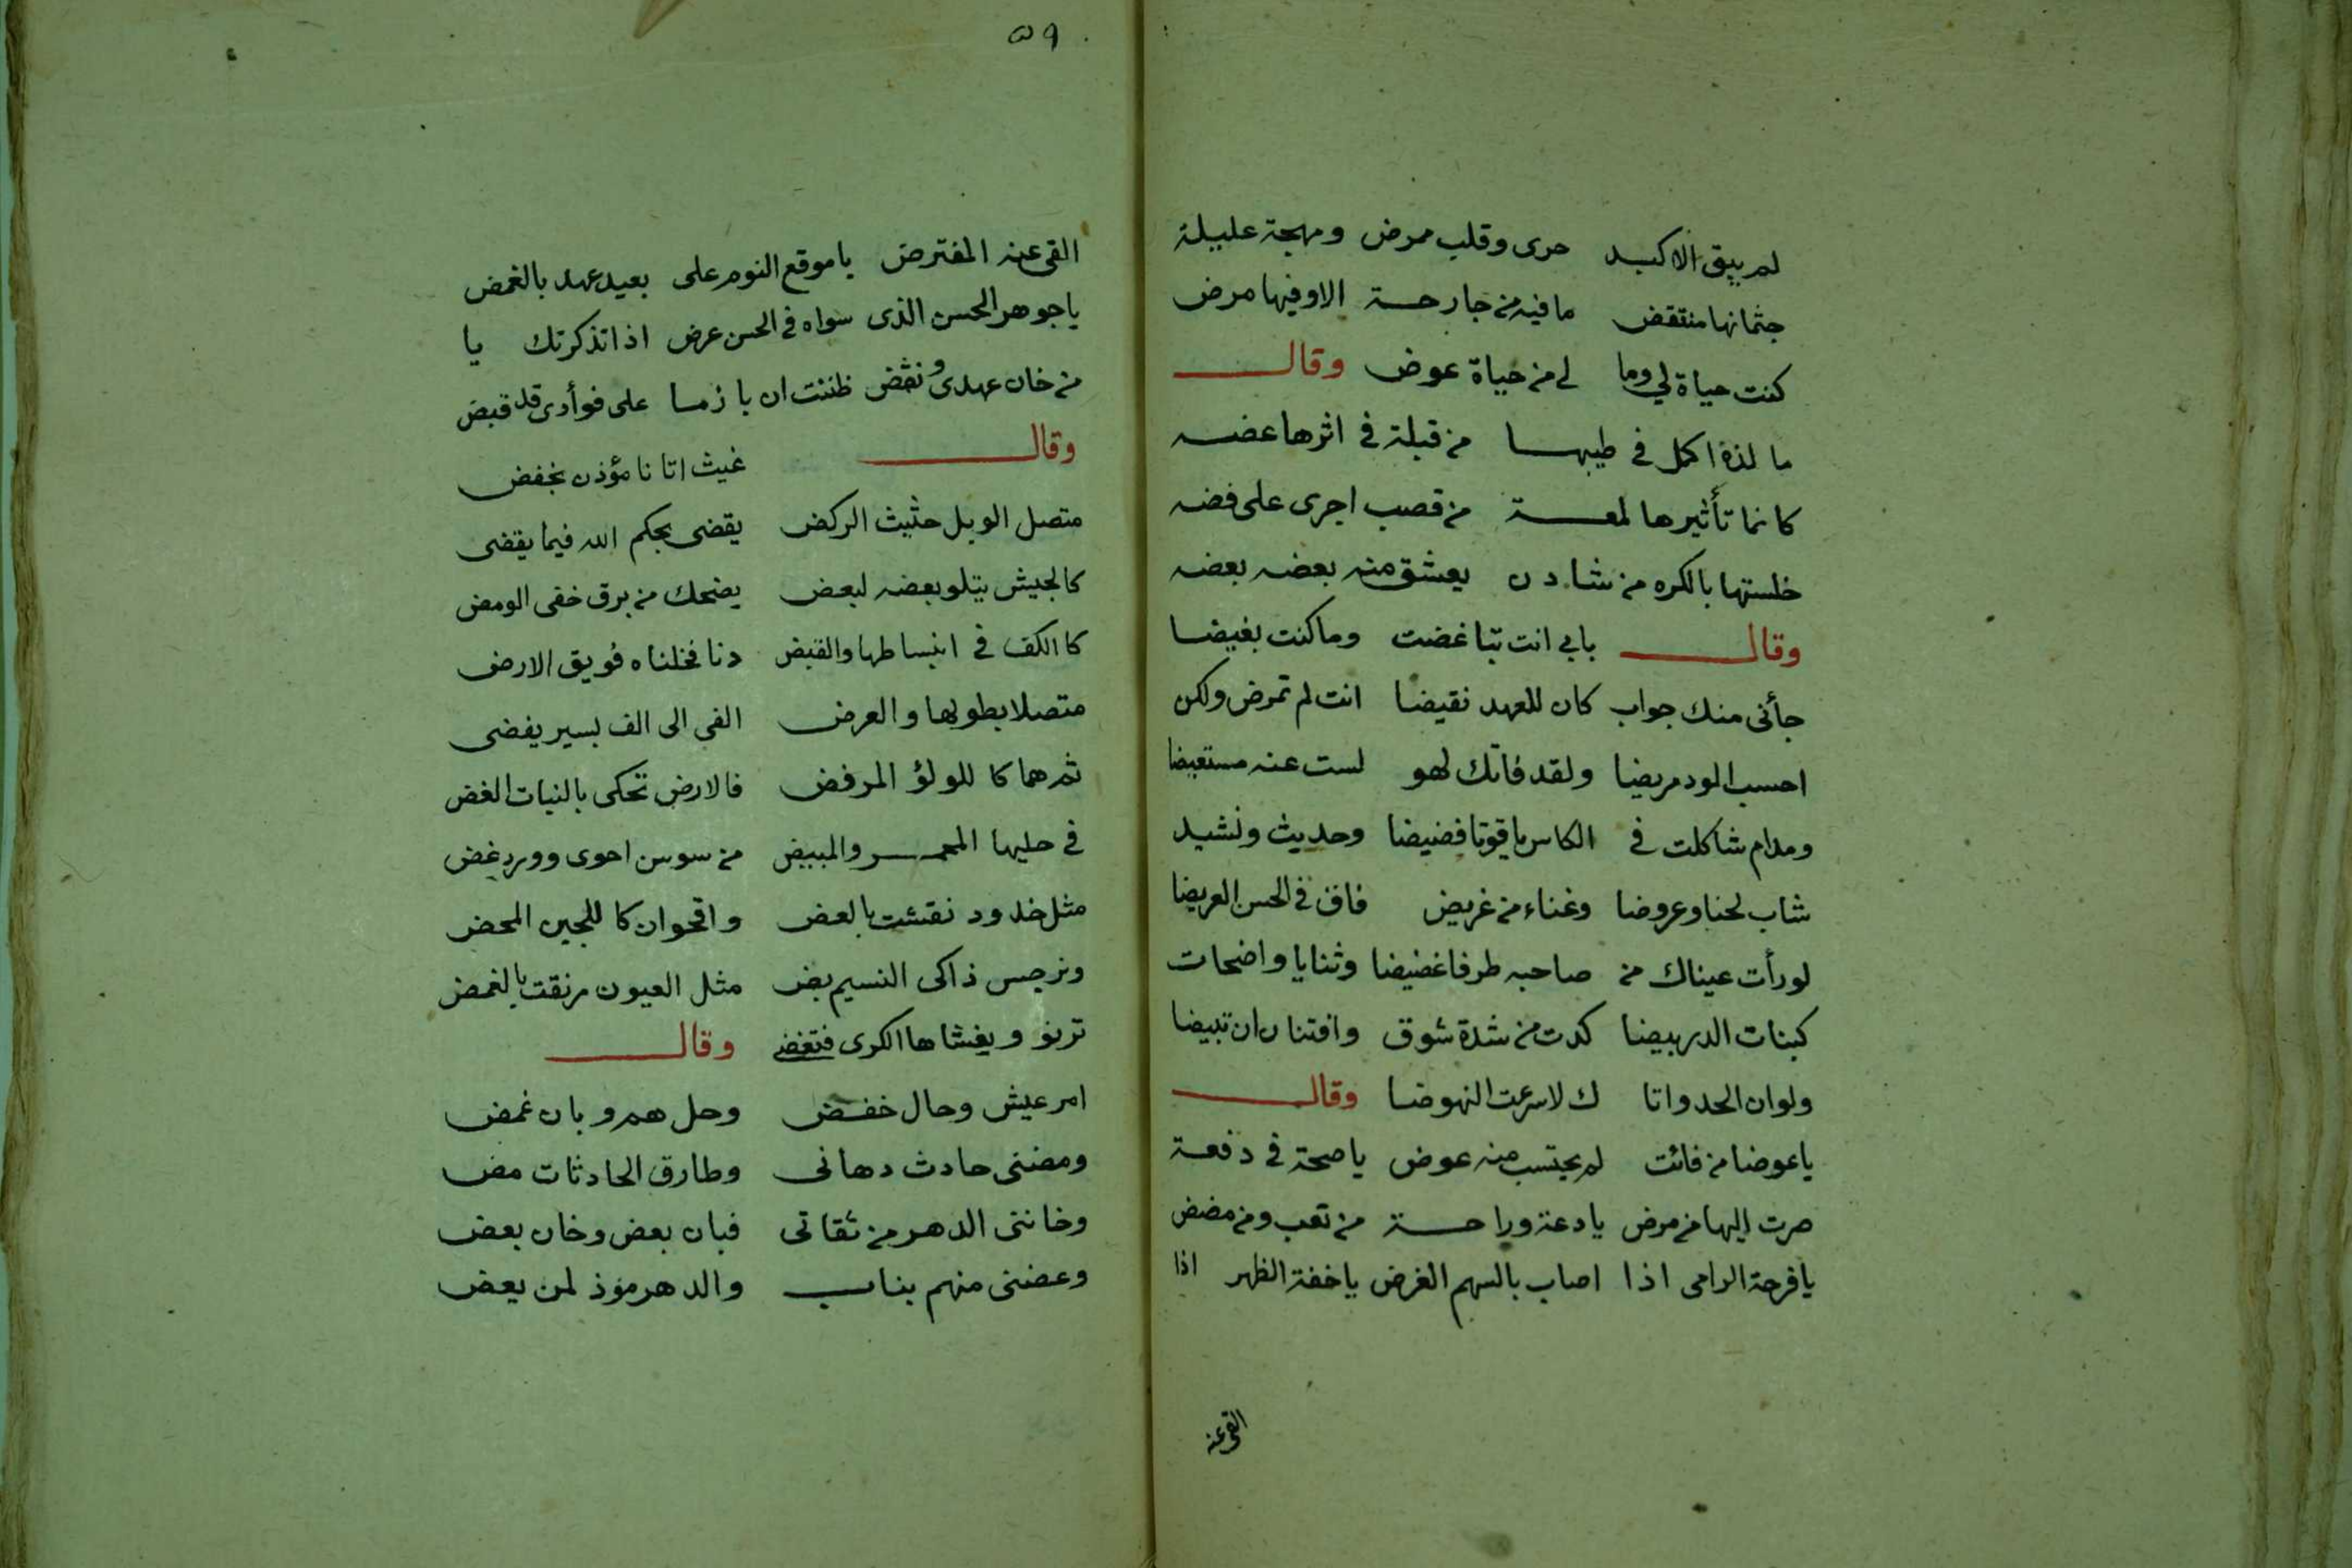 لم يبق الا كبد حرى وقلب ممرض ومهجة عليلة
جثمانها منتقض ما فيه من جارحة الا وفيها مرض
كنت حياة لي وما لي من حياة عوض وقال
ما لذة اكمل في طيبها من قبلة في اثرها عضه
كانما تأثيرها لمعة من قصب اجرى على فضه
خلستها بالكره من شادن يعشق منه بعضه بعضه
وقال بابي انت تباغضت وما كنت بغيضا
جأنى منك جواب كان للعهد نقيضا انت لم تمرض ولكن
احسب الود مريضا ولقد فاتك لهو لست عنه مستعيضا
ومدام شاكلت في الكاس ياقوتا فضيضا وحديث ونشيد
شاب لحنا وعروضا وغناء من غريض فاق في الحسن الغريضا
لو رأت عيناك من صاحبه طرفا غضيضا وثنايا واضحات
كبنات الدر بيضا كدت من شدة شوق وافتنان ان تبيضا
ولو ان الحدواتا ك لاسرعت النهوضا وقال
يا عوضا من فائت لم يحتسب منه عوض يا صحة في دفعة
صرت اليها من مرض يا دعة وراحة من تعب ومن مضض
يا فرحة الرامى اذا اصاب بالسهم الغرض يا خفة الظهر اذا
القى عنه
٥٩
القى عنه المفترض يا موقع النوم على بعيد عهد بالغمض
يا جوهر الحسن الذى سواه في الحسن عرض اذا تذكرتك يا
من خان عهدى ونقض ظننت ان بازما على فوأدى قد قبض
وقال غيث اتانا مؤذن بخفض
متصل الوبل حثيث الركض يقضى بحكم الله فيما يقضى
كالجيش يتلو بعضه لبعض يضحك من برق خفى الومض
كالكف في انبساطها والقبض دنا فخلناه فويق الارض
متصلا بطولها والعرض الفى الى الف بسير يفضى
ثم هما كاللولؤ المرفض فالارض تحكى بالنبات الغض
في حليها المحمر والمبيض من سوسن احوى وورد غض
مثل خدود نقشت بالعض واقحوان كاللجين المحض
ونرجس ذاكى النسيم بض مثل العيون مرنقت بالغمض
ترنو ويغشاها الكرى فتغضى وقال
امر عيش وحال خفض وحل هم وبان غمض
ومضنى حادث دهانى وطارق الحادثات مض
وخاننى الدهر من ثقاتى فبان بعض وخان بعض
وعضنى منهم بناب والدهر مؤذ لمن يعض